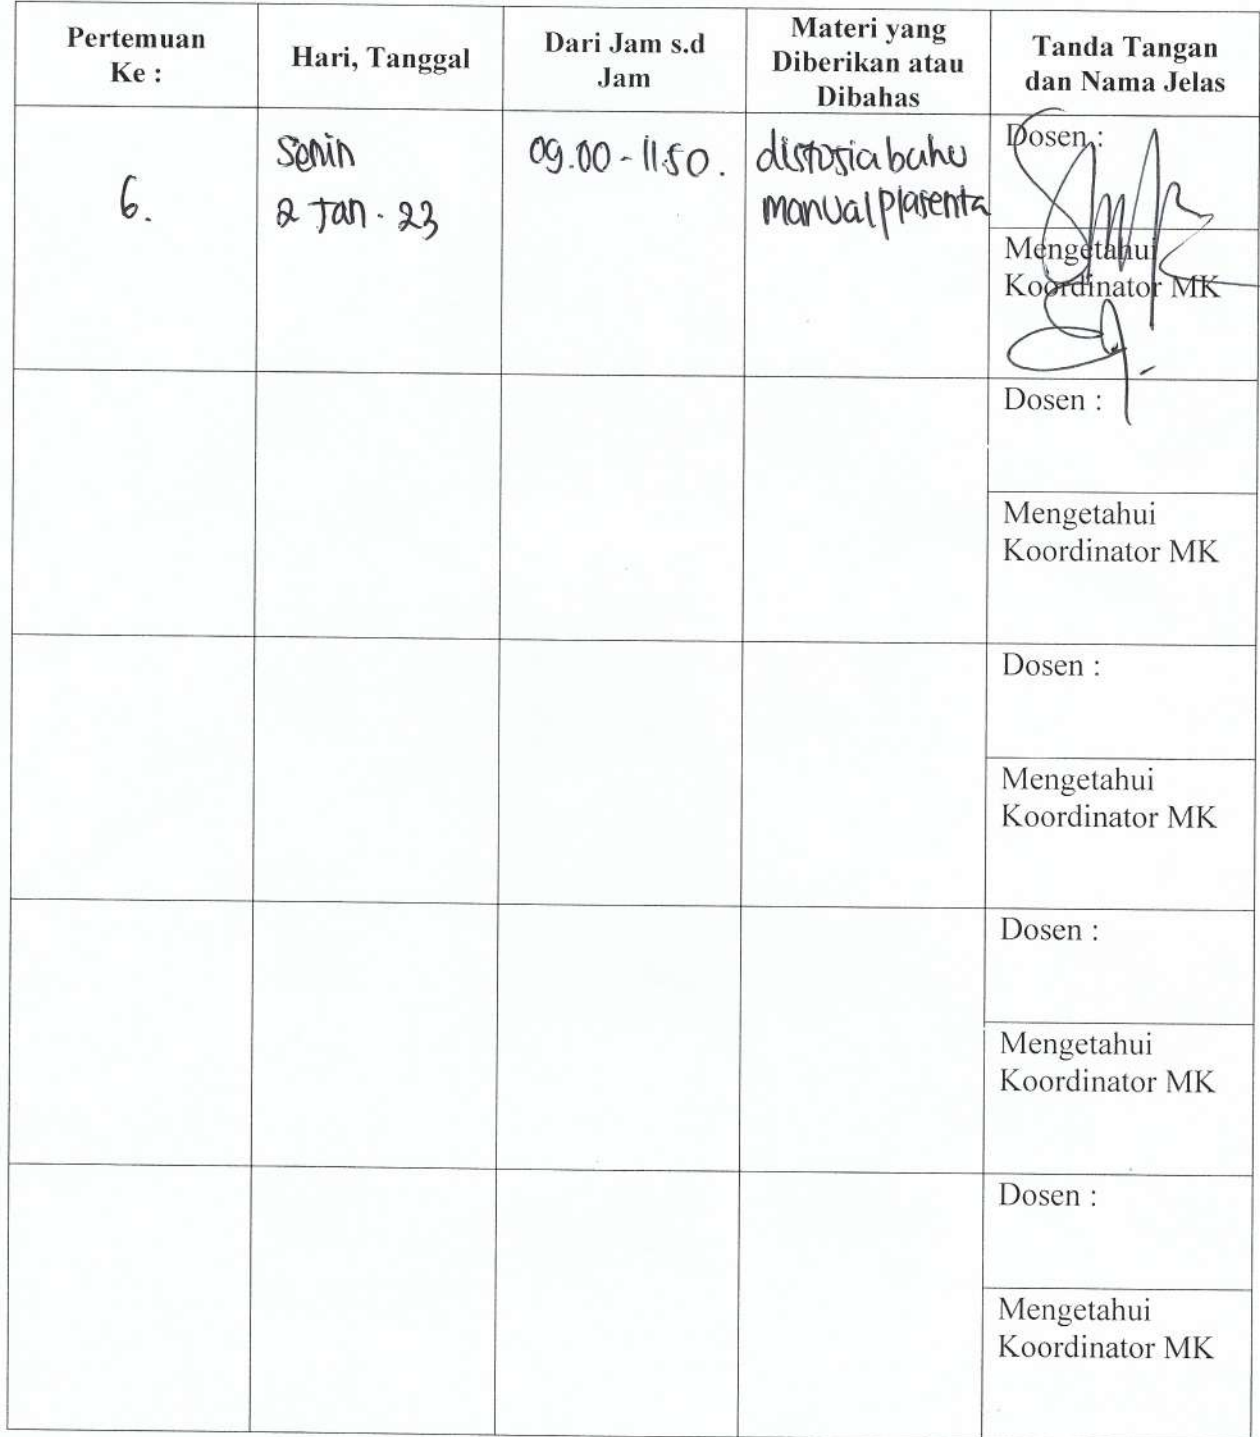 Pertemuan
Ke :
Hari, Tanggal
Dari Jam s.d
Jam
Materi yang
Diberikan atau
Dibahas
Tanda Tangan
dan Nama Jelas
6.
Senin
2 Jan . 23
09.00 - 11.50.
distosia bahu
manual plasenta
Dosen :
Mengetahui
Koordinator MK
Dosen :
Mengetahui
Koordinator MK
Dosen :
Mengetahui
Koordinator MK
Dosen :
Mengetahui
Koordinator MK
Dosen :
Mengetahui
Koordinator MK